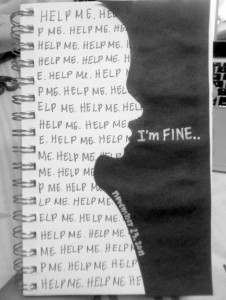 HELP ME. HE
P ME. HELP ME.
HELP ME. HELP
E. HELP ME. HELP
P ME. HELP ME. H
ELP ME. HELP ME.
HELP ME. HELP ME
E. HELP ME. HELP
I'm FINE..
ME. HELP ME.
P ME. HELP ME.
HELP ME. HELP
ME. HELP ME. HE
P ME. HELP ME.
ELP ME. HELP ME
HELP ME. HELP M
ME. HELP ME. HELP
P ME. HELP ME. HE
HELP ME. HELP ME
november